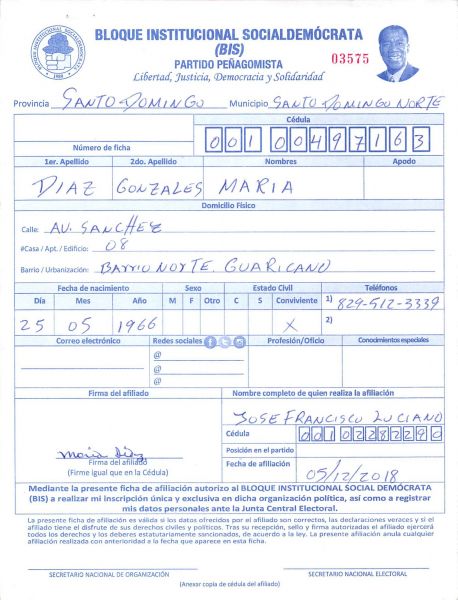 BLOQUE INSTITUCIONAL SOCIALDEMÓCRATA
(BIS)
PARTIDO PEÑAGOMISTA
03575
Libertad, Justicia, Democracia y Solidaridad
Provincia SANTO DOMINGO Municipio SANTO DOMINGO NORTE
Cédula
Número de ficha 001 0049716 3
1er. Apellido 2do. Apellido Nombres Apodo
DIAZ GONZALES MARIA
Domicilio Físico
Calle: AV. SANCHEZ
#Casa / Apt. / Edificio: 08
Barrio / Urbanización: BARRIO NORTE. GUARICANO
Fecha de nacimiento Sexo Estado Civil Teléfonos
Día Mes Año M F Otro C S Conviviente 1) 829-512-3339
25 05 1966 X 2)
Correo electrónico Redes sociales Profesión/Oficio Conocimientos especiales
@
@
@
Firma del afiliado Nombre completo de quien realiza la afiliación
JOSE FRANCISCO LUCIANO
Cédula 00102282290
María Díaz Posición en el partido
Firma del afiliado
(Firme igual que en la Cédula) Fecha de afiliación 05/12/2018
Mediante la presente ficha de afiliación autorizo al BLOQUE INSTITUCIONAL SOCIAL DEMÓCRATA
(BIS) a realizar mi inscripción única y exclusiva en dicha organización política, así como a registrar
mis datos personales ante la Junta Central Electoral.
La presente ficha de afiliación es válida si los datos ofrecidos por el afiliado son correctos, las declaraciones veraces y si el
afiliado tiene el disfrute de sus derechos civiles y políticos. Tras su recepción, sello y firma autorizadas el afiliado ejercerá
todos los derechos y los deberes estatutariamente sancionados, de acuerdo a la ley. La presente afiliación anula cualquier
afiliación realizada con anterioridad a la fecha que aparece en esta ficha.
SECRETARIO NACIONAL DE ORGANIZACIÓN SECRETARIO NACIONAL ELECTORAL
(Anexar copia de cédula del afiliado)